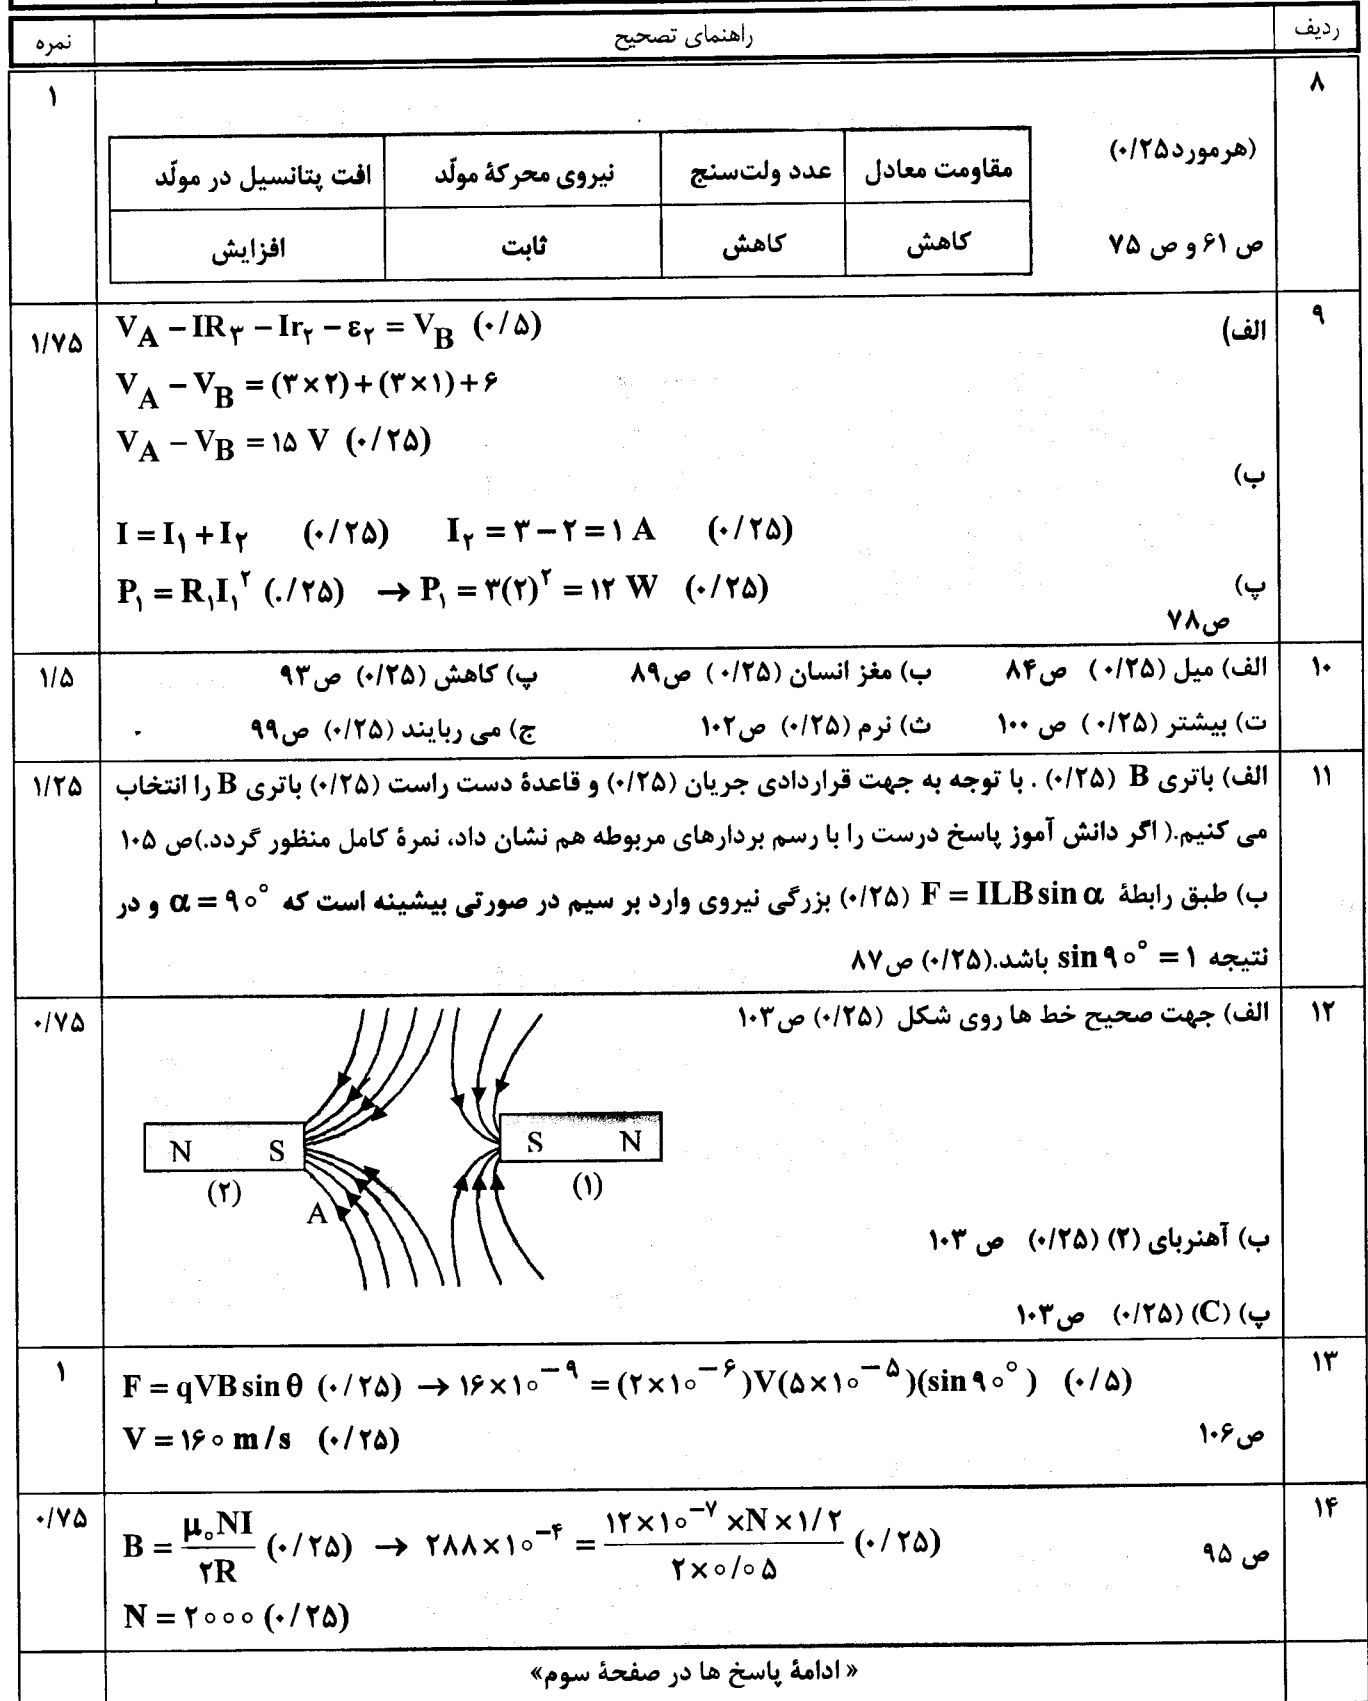 ردیف راهنمای تصحیح نمره
۸ ۱
(هرمورد۰/۲۵)
مقاومت معادل عدد ولت‌سنج نیروی محرکهٔ مولّد افت پتانسیل در مولّد
ص ۶۱ و ص ۷۵
کاهش کاهش ثابت افزایش
۹ ۱/۷۵
الف) V_A − IR_۳ − Ir_۲ − ε_۲ = V_B (۰/۵)
V_A − V_B = (۳×۲)+(۳×۱)+۶
V_A − V_B = ۱۵ V (۰/۲۵)
ب)
I = I_۱ + I_۲ (۰/۲۵) I_۲ = ۳ − ۲ = ۱ A (۰/۲۵)
پ) P_۱ = R_۱I_۱^۲ (./۲۵) → P_۱ = ۳(۲)^۲ = ۱۲ W (۰/۲۵)
ص۷۸
۱۰ الف) میل (۰/۲۵) ص۸۴ ب) مغز انسان (۰/۲۵) ص۸۹ پ) کاهش (۰/۲۵) ص۹۳ ۱/۵
ت) بیشتر (۰/۲۵) ص ۱۰۰ ث) نرم (۰/۲۵) ص۱۰۲ ج) می ربایند (۰/۲۵) ص۹۹
۱۱ الف) باتری B (۰/۲۵) . با توجه به جهت قراردادی جریان (۰/۲۵) و قاعدهٔ دست راست (۰/۲۵) باتری B را انتخاب ۱/۲۵
می کنیم.( اگر دانش آموز پاسخ درست را با رسم بردارهای مربوطه هم نشان داد، نمرهٔ کامل منظور گردد.)ص ۱۰۵
ب) طبق رابطهٔ F = ILB sin α (۰/۲۵) بزرگی نیروی وارد بر سیم در صورتی بیشینه است که α = ۹۰° و در
نتیجه sin ۹۰° = ۱ باشد.(۰/۲۵) ص۸۷
۱۲ الف) جهت صحیح خط ها روی شکل (۰/۲۵) ص۱۰۳ ۰/۷۵
N S S N
(۲) (۱)
A
ب) آهنربای (۲) (۰/۲۵) ص ۱۰۳
پ) (C) (۰/۲۵) ص۱۰۳
۱۳ ۱
F = qVB sin θ (۰/۲۵) → ۱۶×۱۰^−۹ = (۲×۱۰^−۶)V(۵×۱۰^−۵)(sin ۹۰°) (۰/۵)
V = ۱۶۰ m/s (۰/۲۵) ص۱۰۶
۱۴ ۰/۷۵
B = μ_۰NI / ۲R (۰/۲۵) → ۲۸۸×۱۰^−۴ = ۱۲×۱۰^−۷ ×N×۱/۲ / ۲×۰/۰۵ (۰/۲۵) ص ۹۵
N = ۲۰۰۰ (۰/۲۵)
« ادامهٔ پاسخ ها در صفحهٔ سوم»